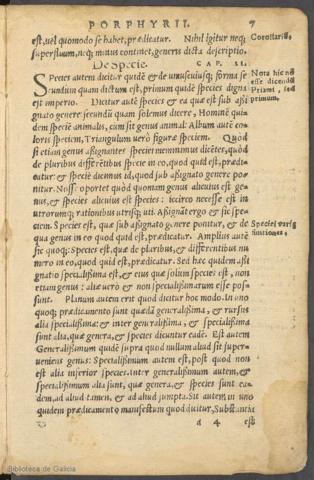 PORPHYRII. 7
est, vel quomodo se habet, prædicatur. Nihil igitur neq; Corollariũ.
superfluum, neq; minus continet, generis dicta descriptio.
De Specie. CAP. II.
SPecies autem dicitur quidē & de uniuscuiusq; forma se Nota hic nõ
cundum quam dictum est, primum quidē species digna esse dicendũ
est imperio. Dicitur autē species & ea quæ est sub assi Priami, sed
gnato genere: secundū quam solemus dicere, Hominē qui primum.
dem speciē animalis, cum sit genus animal: Album autē co
loris speciem, Triangulum verò figuræ speciem. Quòd
si etiam genus assignantes speciei meminimus dicētes, quòd
de pluribus differētibus specie in eo, quod quid est, prædi
catur: & speciē dicimus id, quod sub assignato genere po
nitur. Nosse oportet quòd quoniam genus alicuius est ge
nus, & species alicuius est species: iccirco necesse est in
utrorumq; rationibus utrisq; uti. Assignāt ergo & sic spe
ciem. Species est, quæ sub assignato genere ponitur, & de Speciei variæ
qua genus in eo quod quid est, prædicatur. Amplius autē finitiones.
sic quoq;: Species est, quæ de pluribus, & differentibus nu
mero in eo, quod quid est, prædicatur. Sed hæc quidem assi
gnatio specialissima est, & eius quæ solùm species est, non
etiam genus: aliæ verò & non specialissimarum esse pos-
sunt. Planum autem erit quod dicitur hoc modo. In uno
quoq; prædicamento sunt quædā generalissima, & rursus
alia specialissima: & inter generalissima, & specialissima
sunt alia, quæ genera, & species dicuntur eadē. Est autem
Generalissimum quidē supra quod nullum aliud sit super-
veniens genus: Specialissimum autem est, post quod non
est alia inferior species. Inter generalissimum autem, &
specialissimum alia sunt, quæ genera, & species sunt ea-
dem, ad aliud tamen, & ad aliud sumpta. Sit autem in uno
quidem prædicamento manifestum quod dicitur, Substantia
d 4 est
Biblioteca de Galicia